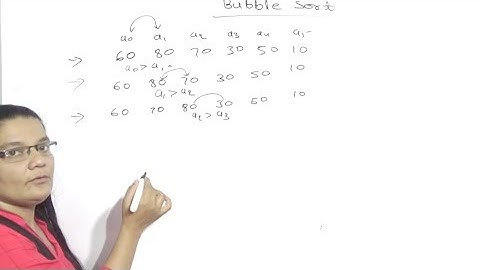 Bubble Sort
a0 a1 a2 a3 a4 a5
→ 60 80 70 30 50 10
a0 > a1
→ 60 80 70 30 50 10
a1 > a2
→ 60 70 80 30 50 10
a2 > a3